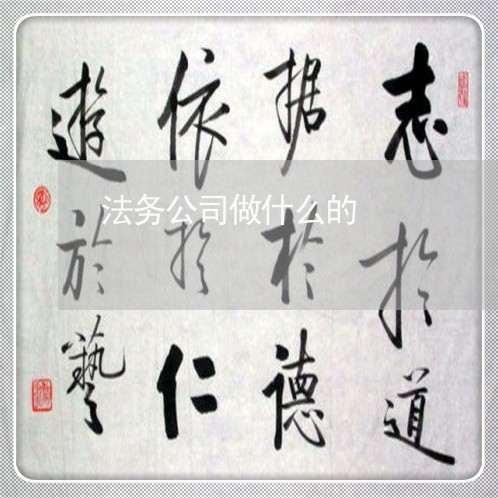 志於道
据於德
依於仁
遊於藝
法务公司做什么的